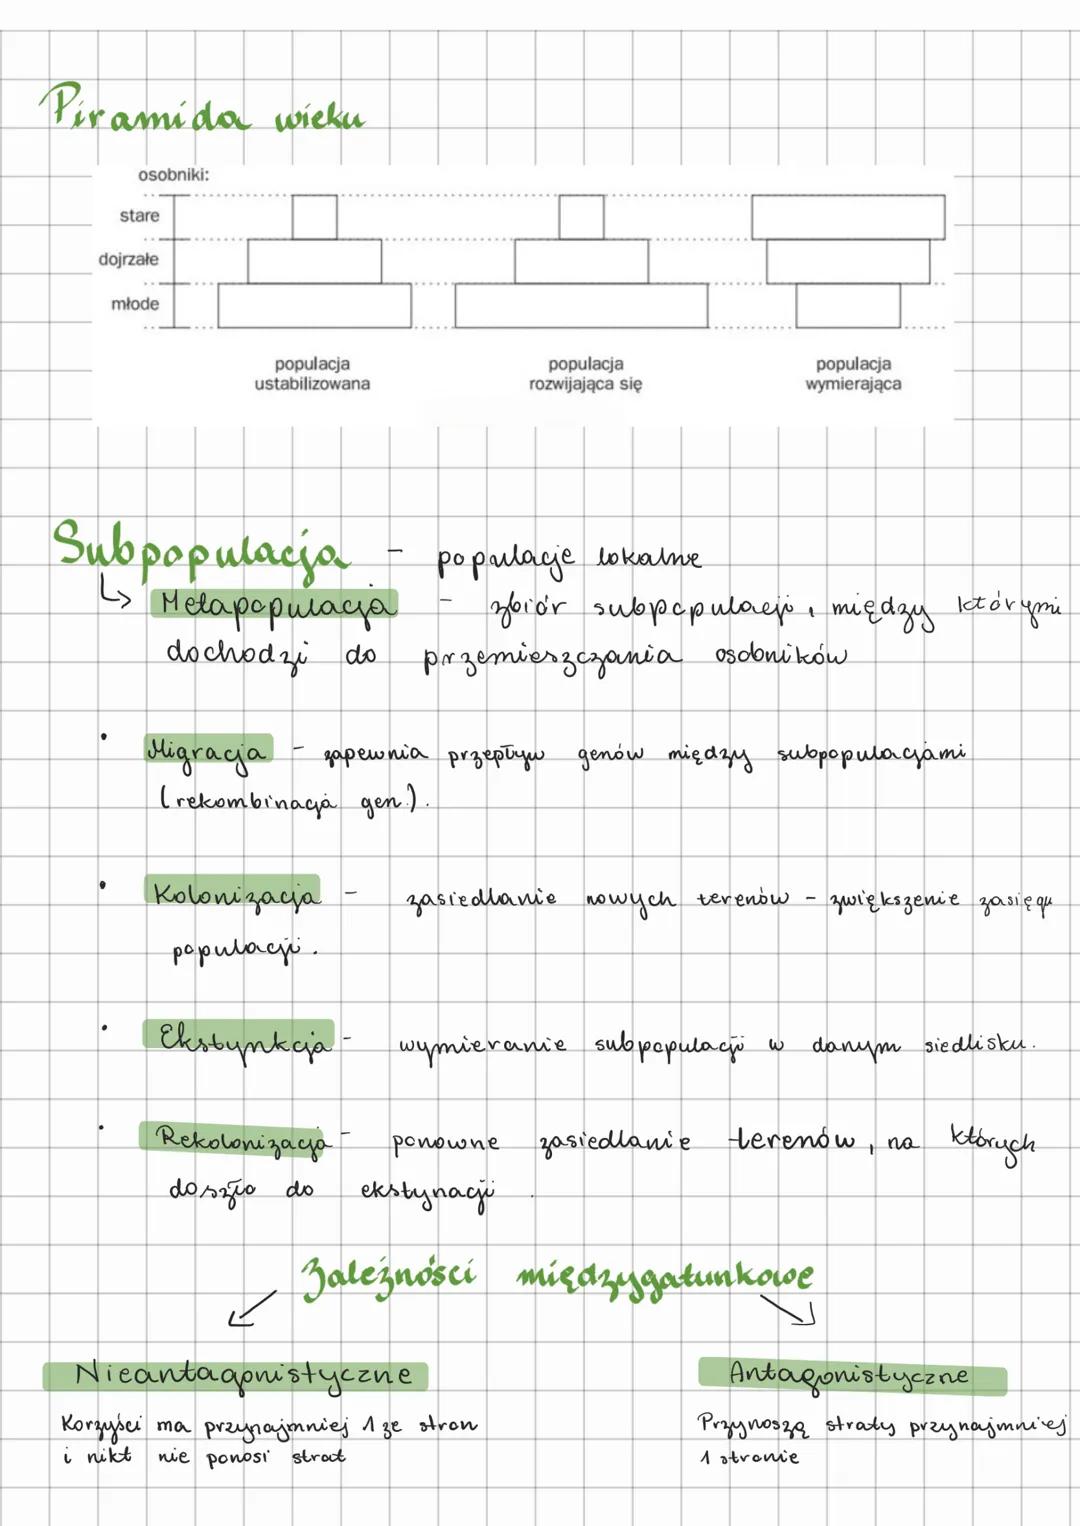 Piramida wieku
osobniki:
stare
dojrzałe
młode
populacja ustabilizowana
populacja rozwijająca się
populacja wymierająca
Subpopulacja - populacje lokalne
↳ Metapopulacja - zbiór subpopulacji, między którymi
dochodzi do przemieszczania osobników
• Migracja - zapewnia przepływ genów między subpopulacjami
(rekombinacja gen.).
• Kolonizacja - zasiedlanie nowych terenów - zwiększenie zasięgu
populacji.
• Ekstynkcja - wymieranie subpopulacji w danym siedlisku.
• Rekolonizacja - ponowne zasiedlanie terenów, na których
doszło do ekstynacji.
Zależności międzygatunkowe
Nieantagonistyczne
Korzyści ma przynajmniej 1 ze stron
i nikt nie ponosi strat
Antagonistyczne
Przynoszą straty przynajmniej
1 stronie